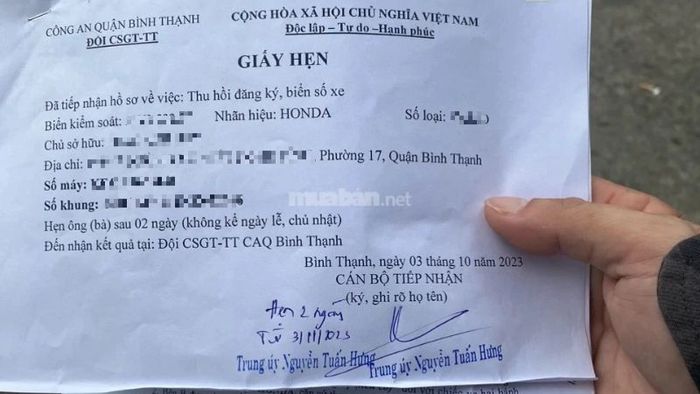 CÔNG AN QUẬN BÌNH THẠNH
ĐỘI CSGT-TT
CỘNG HÒA XÃ HỘI CHỦ NGHĨA VIỆT NAM
Độc lập – Tự do –Hạnh phúc
GIẤY HẸN
Đã tiếp nhận hồ sơ về việc: Thu hồi đăng ký, biển số xe
Biển kiểm soát: Nhãn hiệu: HONDA Số loại:
Chủ sở hữu:
Địa chỉ: , Phường 17, Quận Bình Thạnh
Số máy:
Số khung:
muaban.net
Hẹn ông (bà) sau 02 ngày (không kể ngày lễ, chủ nhật)
Đến nhận kết quả tại: Đội CSGT-TT CAQ Bình Thạnh
Bình Thạnh, ngày 03 tháng 10 năm 2023
CÁN BỘ TIẾP NHẬN
(ký, ghi rõ họ tên)
Hẹn 2 ngày
Từ 3/11/2023
Trung úy Nguyễn Tuấn Hưng
Trung úy Nguyễn Tuấn Hưng